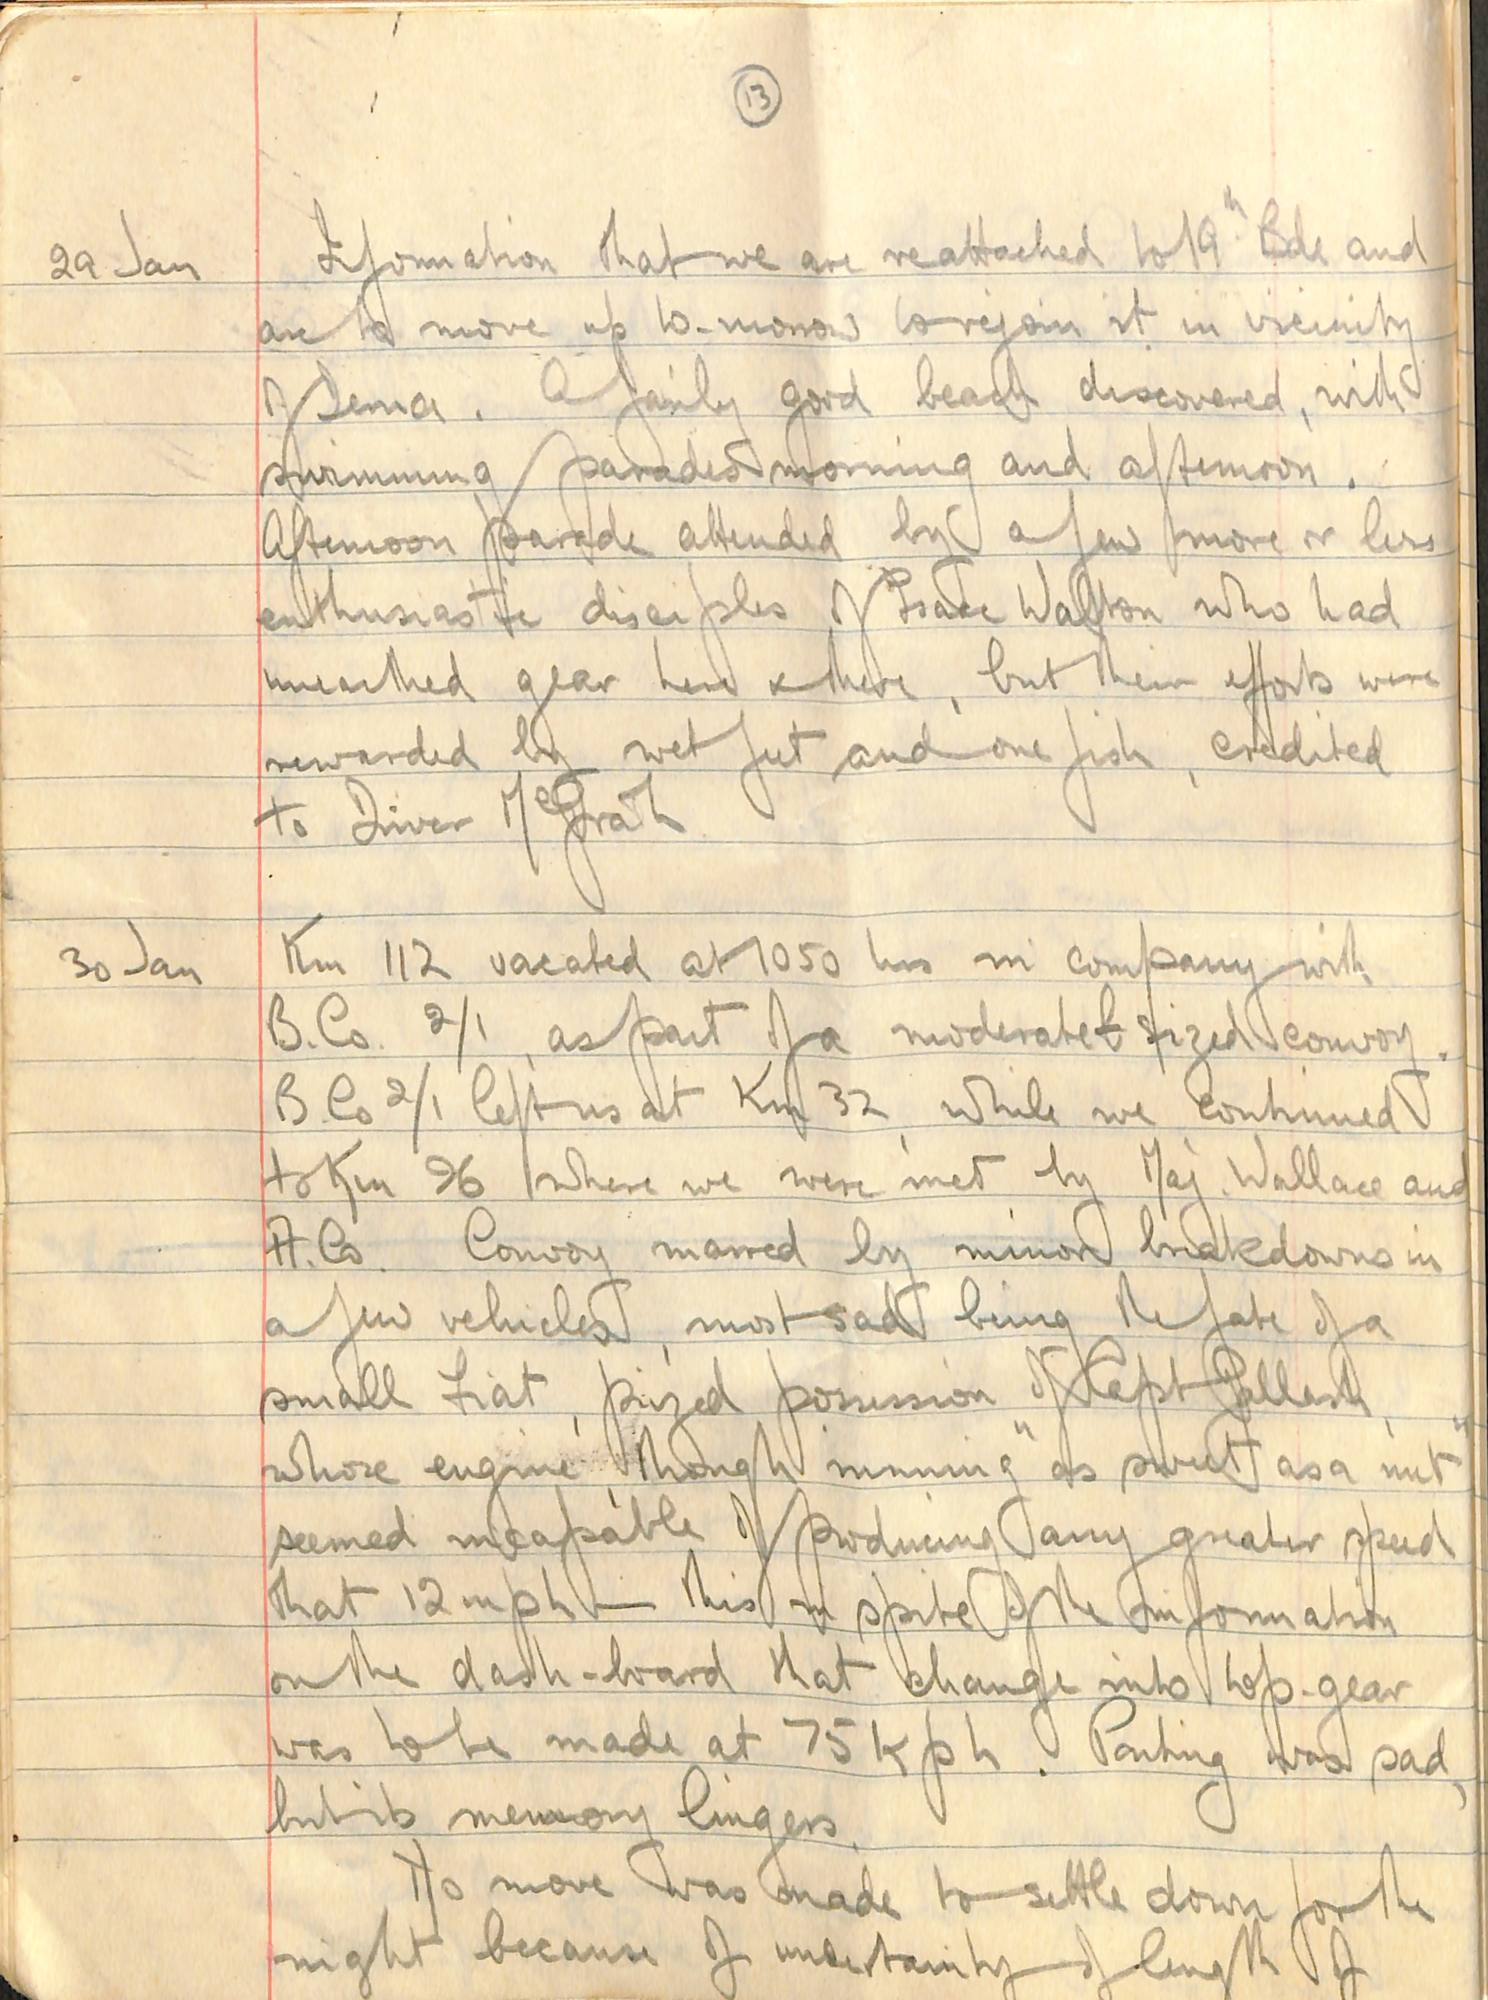 13
29 Jan Information that we are reattached to 19th Bde and
are to move up to-morrow to rejoin it in vicinity
of Derna. A fairly good beach discovered, with
swimming parades morning and afternoon.
Afternoon parade attended by a few more or less
enthusiastic disciples of Isaac Walton who had
unearthed gear here & there, but their efforts were
rewarded by wet feet and one fish, credited
to Driver McGrath
30 Jan Km 112 vacated at 1050 hrs in company with
B.Co. 2/1, as part of a moderate sized convoy.
B.Co 2/1 left us at Km 32, while we continued
to Km 26 where we were met by Maj. Wallace and
A.Co. Convoy marred by minor breakdowns in
a few vehicles, most sad being the fate of a
small Fiat, prized possession of Capt
whose engine, though running "as sweet as a nut"
seemed incapable of producing any greater speed
that 12 mph — this in spite of the information
on the dash-board that change into top-gear
was to be made at 75 kph. Parting was sad,
but its memory lingers.
No move was made to settle down for the
night because of uncertainty of length of